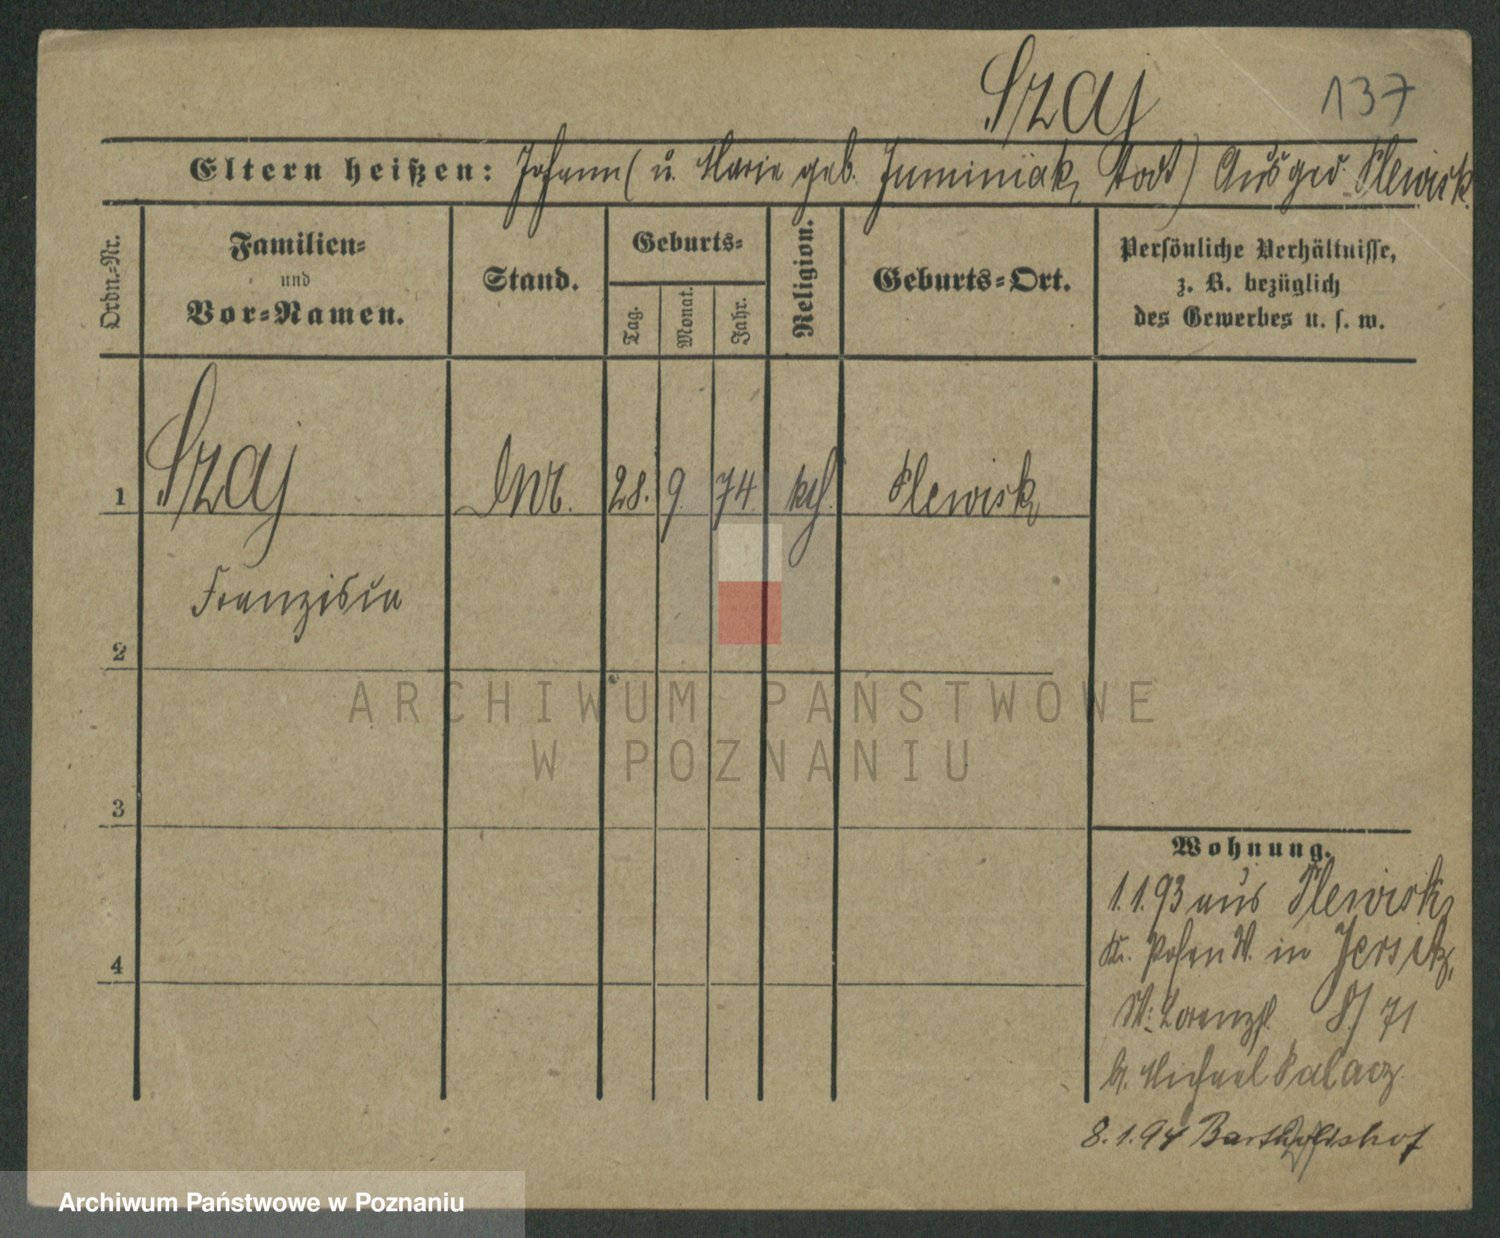 Szaj 137
Eltern heißen: Johann (u. Marie geb. Juminiak, todt) Ausged. Plewisk
Ordn.-Nr.
Familien-
und
Vor-Namen.
Stand.
Geburts-
Tag.
Monat.
Jahr.
Religion.
Geburts-Ort.
Persönliche Verhältnisse,
z. B. bezüglich
des Gewerbes u. s. w.
1 Szaj 28. 9. 74. kth. Plewisk
Franziska
2
3
4
Wohnung.
1.1.93 aus Plewisk,
Kr. Posen W. in Jersitz,
71
b. Michael Palacz
8.1.94 Bartholdshof
ARCHIWUM PAŃSTWOWE
W POZNANIU
Archiwum Państwowe w Poznaniu